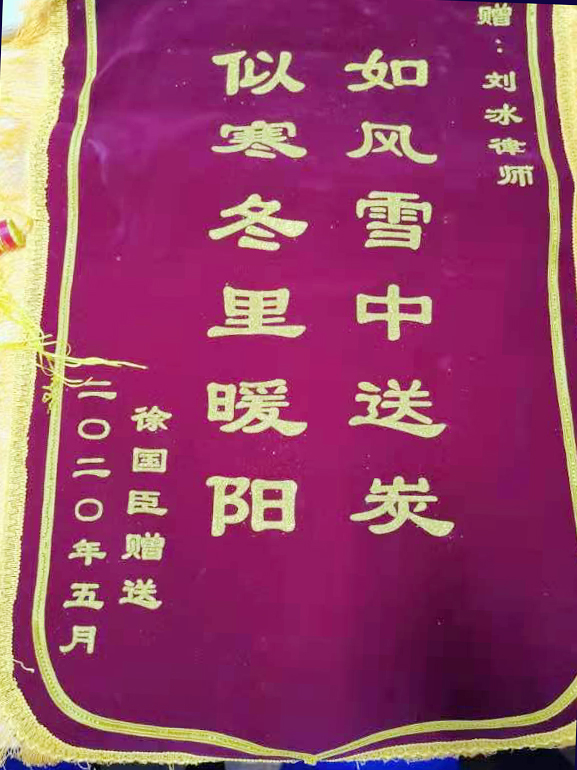 赠：刘冰律师
如风雪中送炭
似寒冬里暖阳
徐国臣赠送
二〇二〇年五月